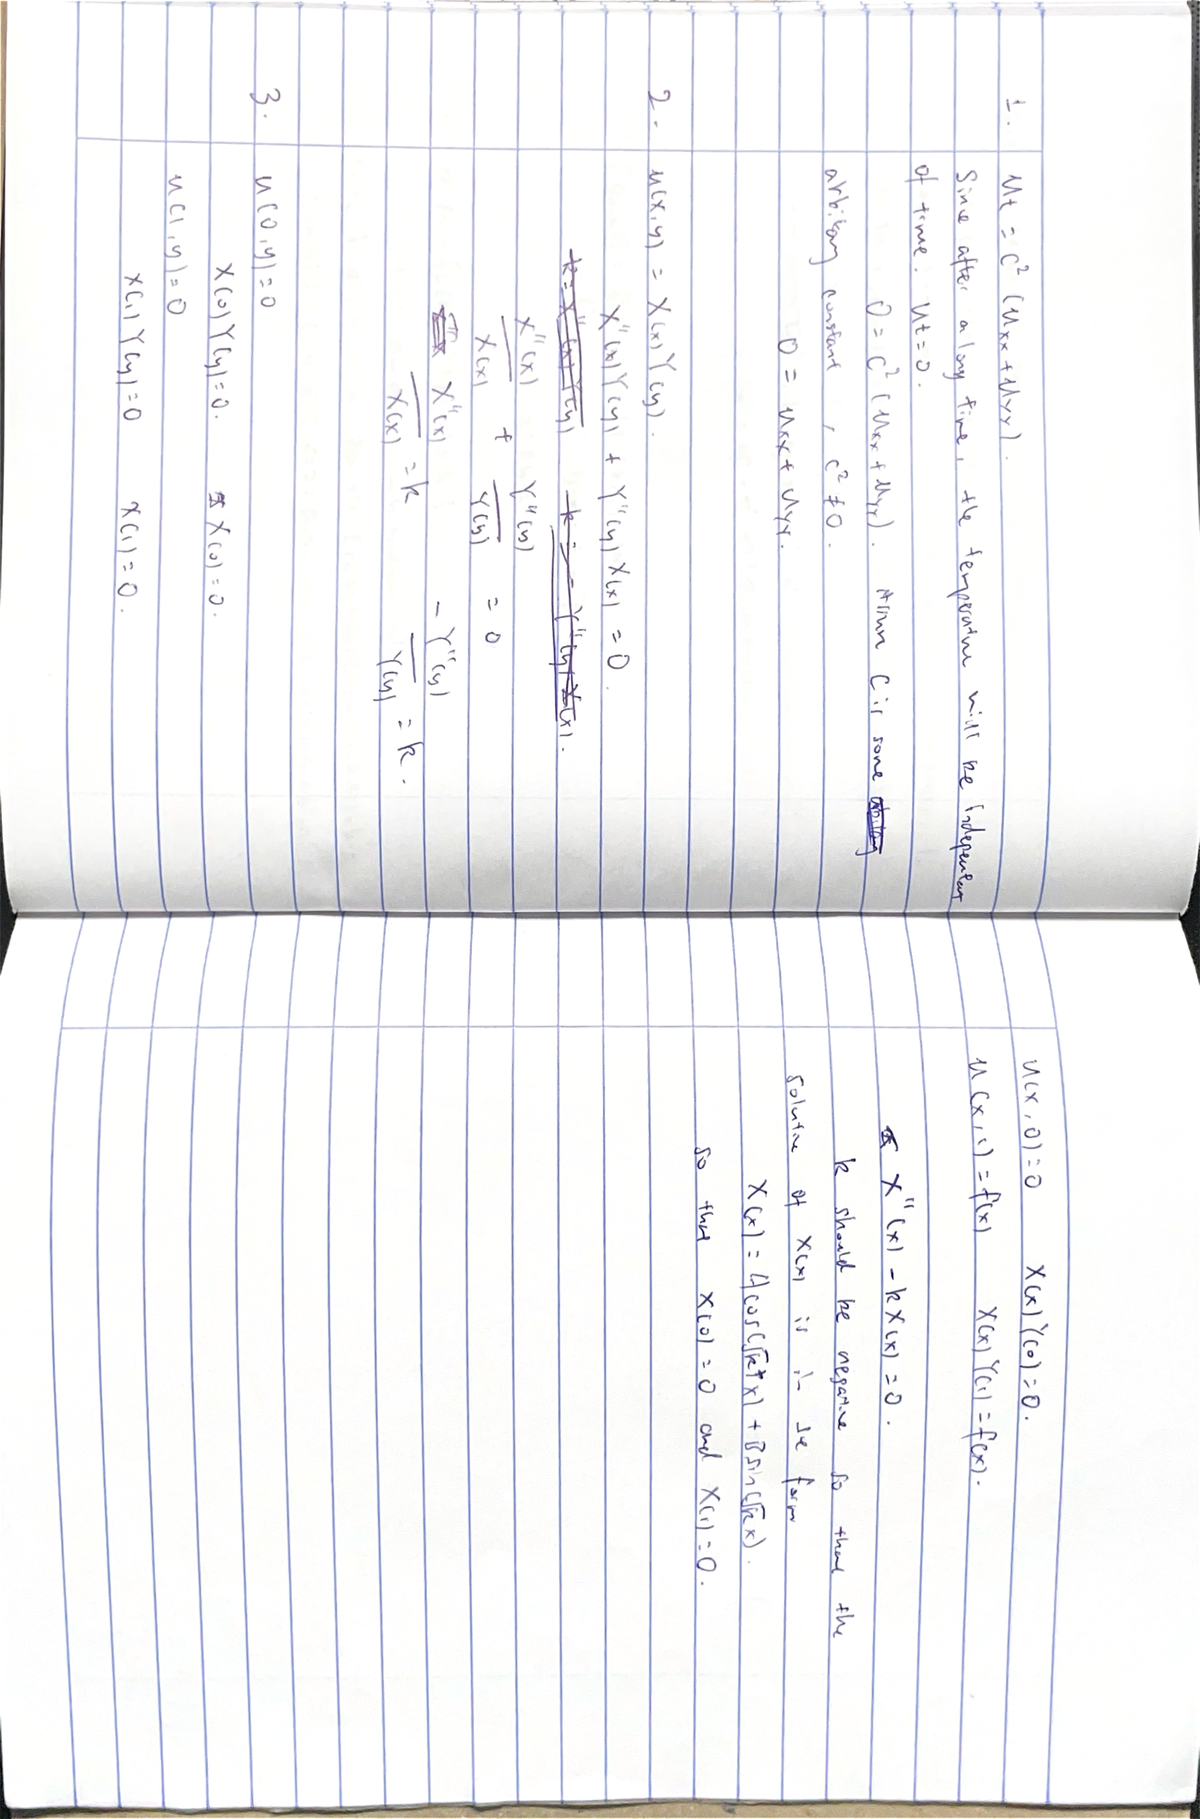 1. ut = c² (uxx + uyy).
Since after a long time, the temperature will be independent
of time. ut = 0.
0 = c² (uxx + uyy). Assume C is some
arbitary constant, c² ≠ 0.
0 = uxx + uyy.
2. u(x,y) = X(x) Y(y).
X''(x) Y(y) + Y''(y) X(x) = 0.
k = X''(x) Y(y) k = - Y''(y) X(x).
X''(x)/X(x) + Y''(y)/Y(y) = 0
X''(x)/X(x) = k - Y''(y)/Y(y) = k.
3. u(0,y) = 0
X(0) Y(y) = 0. X(0) = 0.
u(1,y) = 0
X(1) Y(y) = 0 X(1) = 0.
u(x,0) = 0 X(x) Y(0) = 0.
u(x,1) = f(x) X(x) Y(1) = f(x).
X''(x) - kX(x) = 0.
k should be negative so that the
solution of X(x) is in the form
X(x) = A cos(√k x) + B sin(√k x).
so that X(0) = 0 and X(1) = 0.